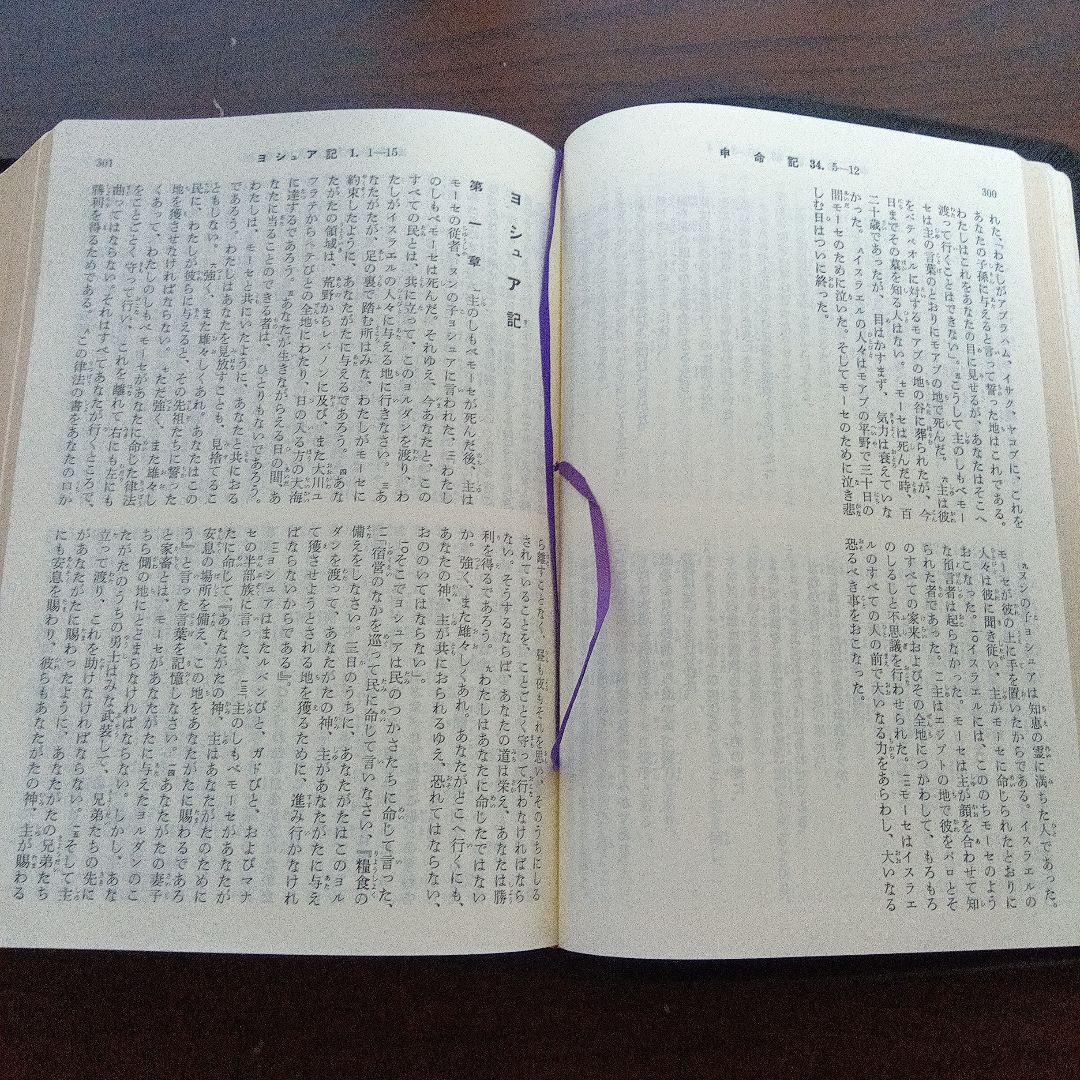 申命記 34. 5―12
300
れた、「わたしがアブラハム、イサク、ヤコブに、これを
あなたの子孫に与えると言って誓った地はこれである。
わたしはこれをあなたの目に見せるが、あなたはそこへ
渡って行くことはできない」。五こうして主のしもべモー
セは主の言葉のとおりにモアブの地で死んだ。六主は彼
をベテペオルに対するモアブの地の谷に葬られたが、今
日までその墓を知る人はない。七モーセは死んだ時、百
二十歳であったが、目はかすまず、気力は衰えていな
かった。八イスラエルの人々はモアブの平野で三十日の
間モーセのために泣いた。そしてモーセのために泣き悲
しむ日はついに終った。
九ヌンの子ヨシュアは知恵の霊に満ちた人であった。
モーセが彼の上に手を置いたからである。イスラエルの
人々は彼に聞き従い、主がモーセに命じられたとおりに
おこなった。一〇イスラエルには、こののちモーセのよう
な預言者は起らなかった。モーセは主が顔を合わせて知
られた者であった。一一主はエジプトの地で彼をパロとそ
のすべての家来およびその全地につかわして、もろもろ
のしるしと不思議を行わせられた。一二モーセはイスラエ
ルのすべての人の前で大いなる力をあらわし、大いなる
恐るべき事をおこなった。
ヨシュア記 1. 1―15
301
ヨシュア記
第一章 一主のしもべモーセが死んだ後、主は
モーセの従者、ヌンの子ヨシュアに言われた、二「わたし
のしもべモーセは死んだ。それゆえ、今あなたと、この
すべての民とは、共に立って、このヨルダンを渡り、わ
たしがイスラエルの人々に与える地に行きなさい。三あ
なたがたが、足の裏で踏む所はみな、わたしがモーセに
約束したように、あなたがたに与えるであろう。四あな
たがたの領域は、荒野からレバノンに及び、また大川ユ
フラテからヘテびとの全地にわたり、日の入る方の大海
に達するであろう。五あなたが生きながらえる日の間、あ
なたに当ることのできる者は、ひとりもないであろう。
わたしは、モーセと共にいたように、あなたと共におる
であろう。わたしはあなたを見放すことも、見捨てるこ
ともしない。六強く、また雄々しくあれ。あなたはこの
民に、わたしが彼らに与えると、その先祖たちに誓った
地を獲させなければならない。七ただ強く、また雄々し
くあって、わたしのしもべモーセがあなたに命じた律法
をことごとく守って行い、これを離れて右にも左にも
曲ってはならない。それはすべてあなたが行くところで、
勝利を得るためである。八この律法の書をあなたの口か
ら離すことなく、昼も夜もそれを思い、そのうちにしる
されていることを、ことごとく守って行わなければなら
ない。そうするならば、あなたの道は栄え、あなたは勝
利を得るであろう。九わたしはあなたに命じたではない
か。強く、また雄々しくあれ。あなたがどこへ行くにも、
あなたの神、主が共におられるゆえ、恐れてはならない、
おののいてはならない」。
一〇そこでヨシュアは民のつかさたちに命じて言った、
一一「宿営のなかを巡って民に命じて言いなさい、『糧食の
備えをしなさい。三日のうちに、あなたがたはこのヨル
ダンを渡って、あなたがたの神、主があなたがたに与え
て獲させようとされる地を獲るために、進み行かなけれ
ばならないからである』」。
一二ヨシュアはまたルベンびと、ガドびと、およびマナ
セの半部族に言った、一三「主のしもべモーセがあなたが
たに命じて、『あなたがたの神、主はあなたがたのために
安息の場所を備え、この地をあなたがたに賜わるであろ
う』と言った言葉を記憶しなさい。一四あなたがたの妻子
と家畜とは、モーセがあなたがたに与えたヨルダンのこ
ちら側の地にとどまらなければならない。しかし、あな
たがたのうちの勇士はみな武装して、兄弟たちの先に
立って渡り、これを助けなければならない。一五そして主
があなたがたに賜わったように、あなたがたの兄弟たち
にも安息を賜わり、彼らもあなたがたの神、主が賜わる